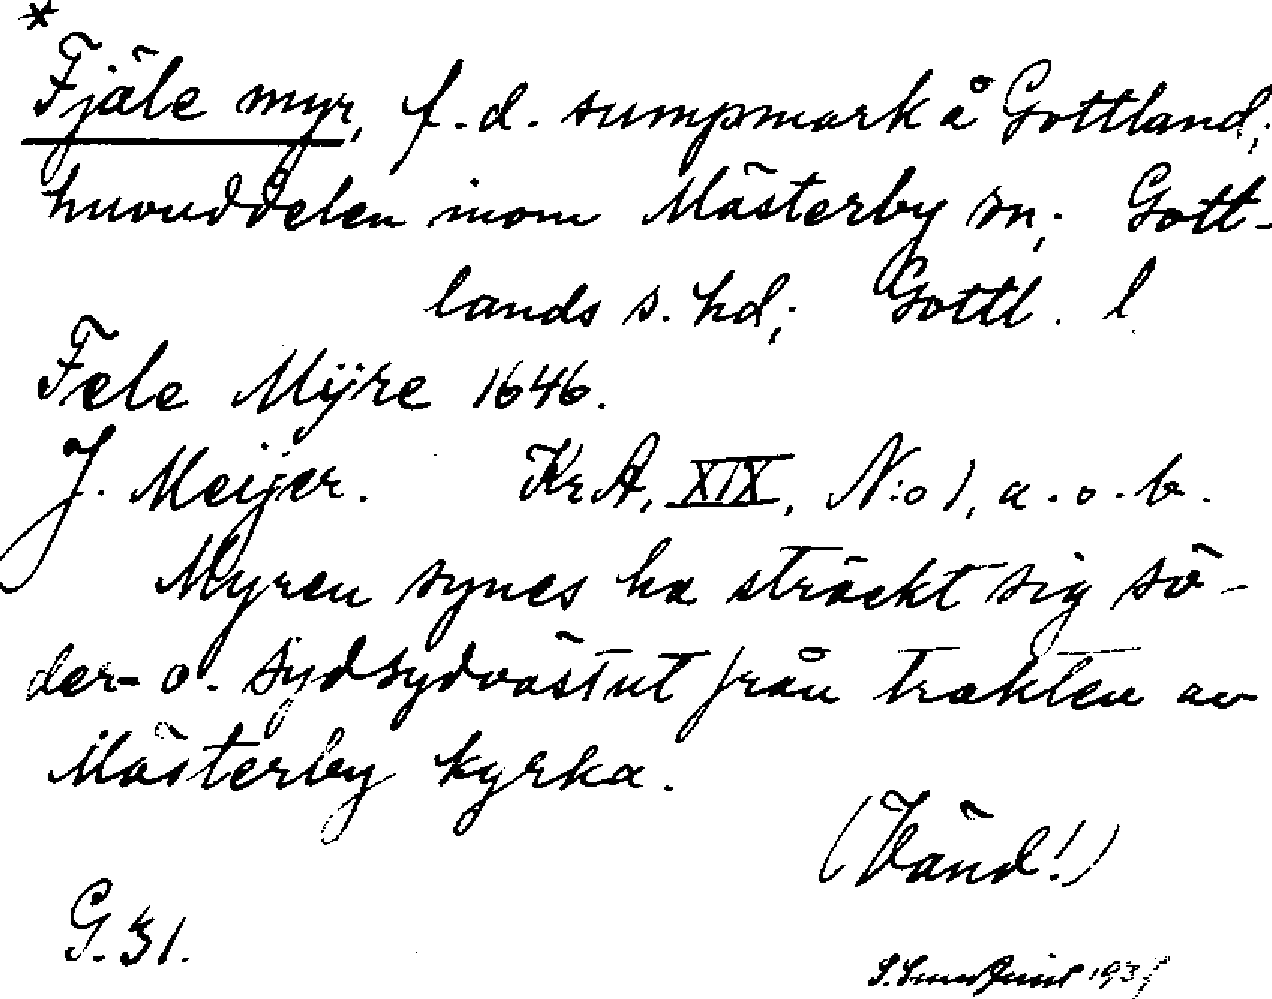 *
Fjäle myr, f.d. sumpmark å Gottland;
huvuddelen inom Mästerby sn; Gott-
lands s. hd; Gottl. l
Fele Mÿre 1646.
J. Meijer. KrA, XIX, N:o 1, a.o.b.
Myren synes ha sträckt sig sö-
der- o. sydsydvästut från trakten av
Mästerby kyrka.
(Vänd!)
G. 31.